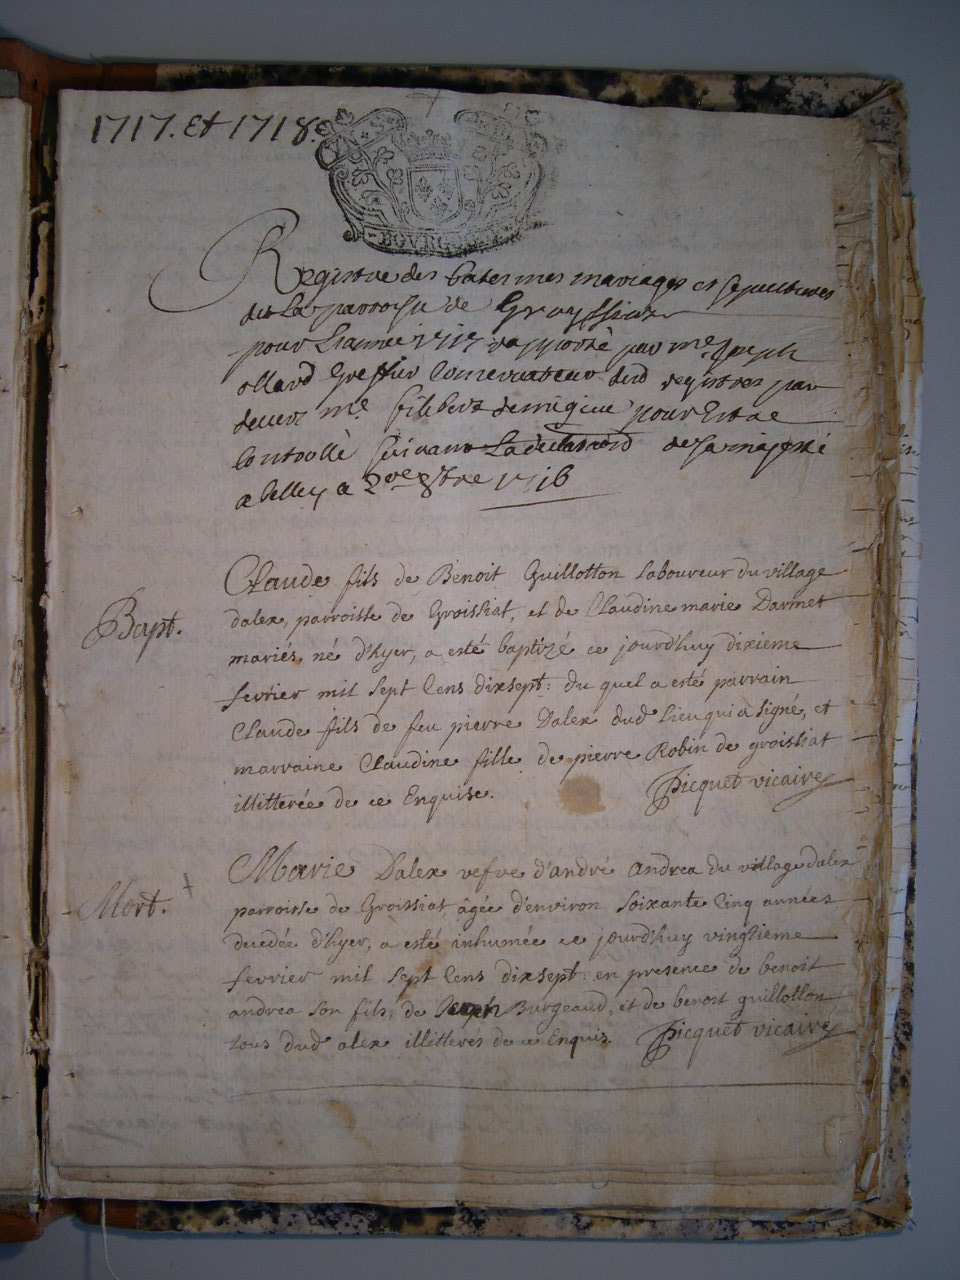 1717. et 1718.
BOURG
Registre des batesmes mariages et sepultures
de la parroisse de Groyssiat
pour L'année 1717 rapporté par me. Joseph
ollard Greffier Conservateur desd registres par
devers me. filibert demigieu pour Estre
Controllé suivant La declaraon de sa majesté
a belley a 8bre 1716
Bapt.
Claude fils de Benoit Guillotton laboureur du village
dalex, parroisse de Groissiat, et de Claudine marie Darmet
mariés, né d'hyer, a esté baptizé ce jourd'huy dixieme
fevrier mil sept Cens dixsept: du quel a esté parrain
Claude fils de feu pierre Dalex dud Lieu qui a signé, et
marraine Claudine fille de pierre Robin de groissiat
illitterée de ce Enquise. Picquet vicaire
Mort. +
Marie Dalex vefve d'andré Andrea du village dalex
parroisse de Groissiat, âgée d'environ soixante Cinq années
decedée d'hyer, a esté inhumée ce jourd'huy vingtieme
fevrier mil sept Cens dixsept: en presence de benoit
andrea son fils, de Joseph Burgeaud, et de benoit guillotton
tous dud alex illitterés de ce Enquis. Picquet vicaire